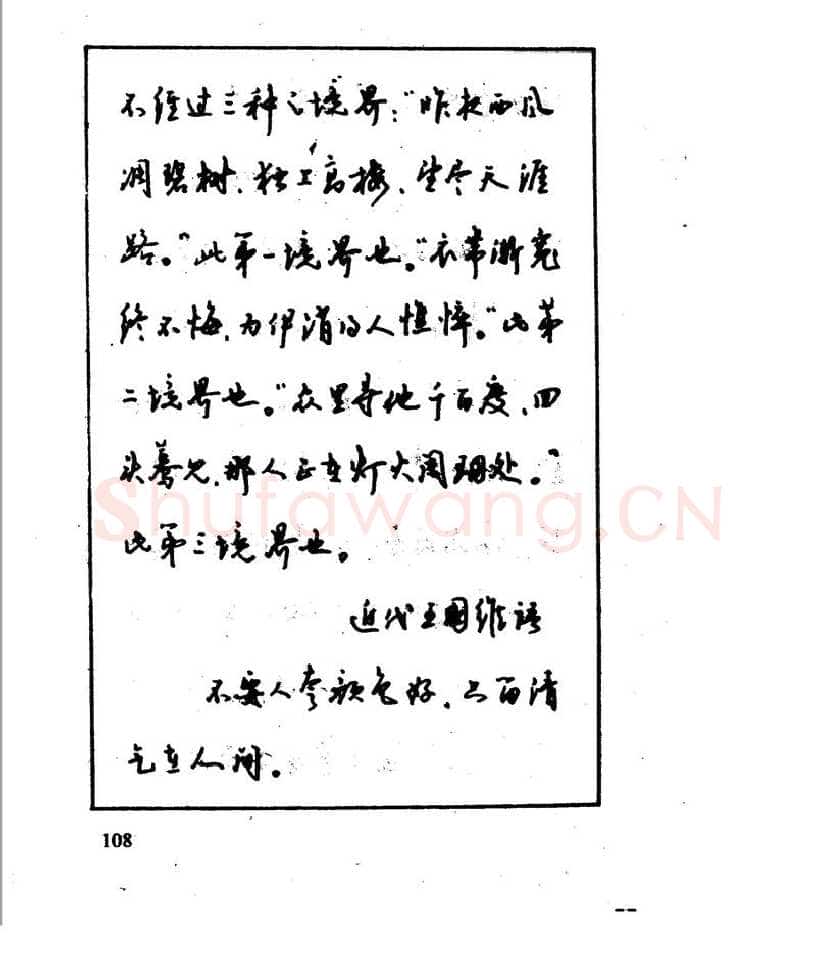 不经过三种之境界：“昨夜西风
凋碧树，独上高楼，望尽天涯
路。”此第一境界也。“衣带渐宽
终不悔，为伊消得人憔悴。”此第
二境界也。“众里寻他千百度，回
头蓦见，那人正在灯火阑珊处。”
Shufawang.CN
此第三境界也。
近代王国维语
不要人夸颜色好，只留清
气在人间。
108